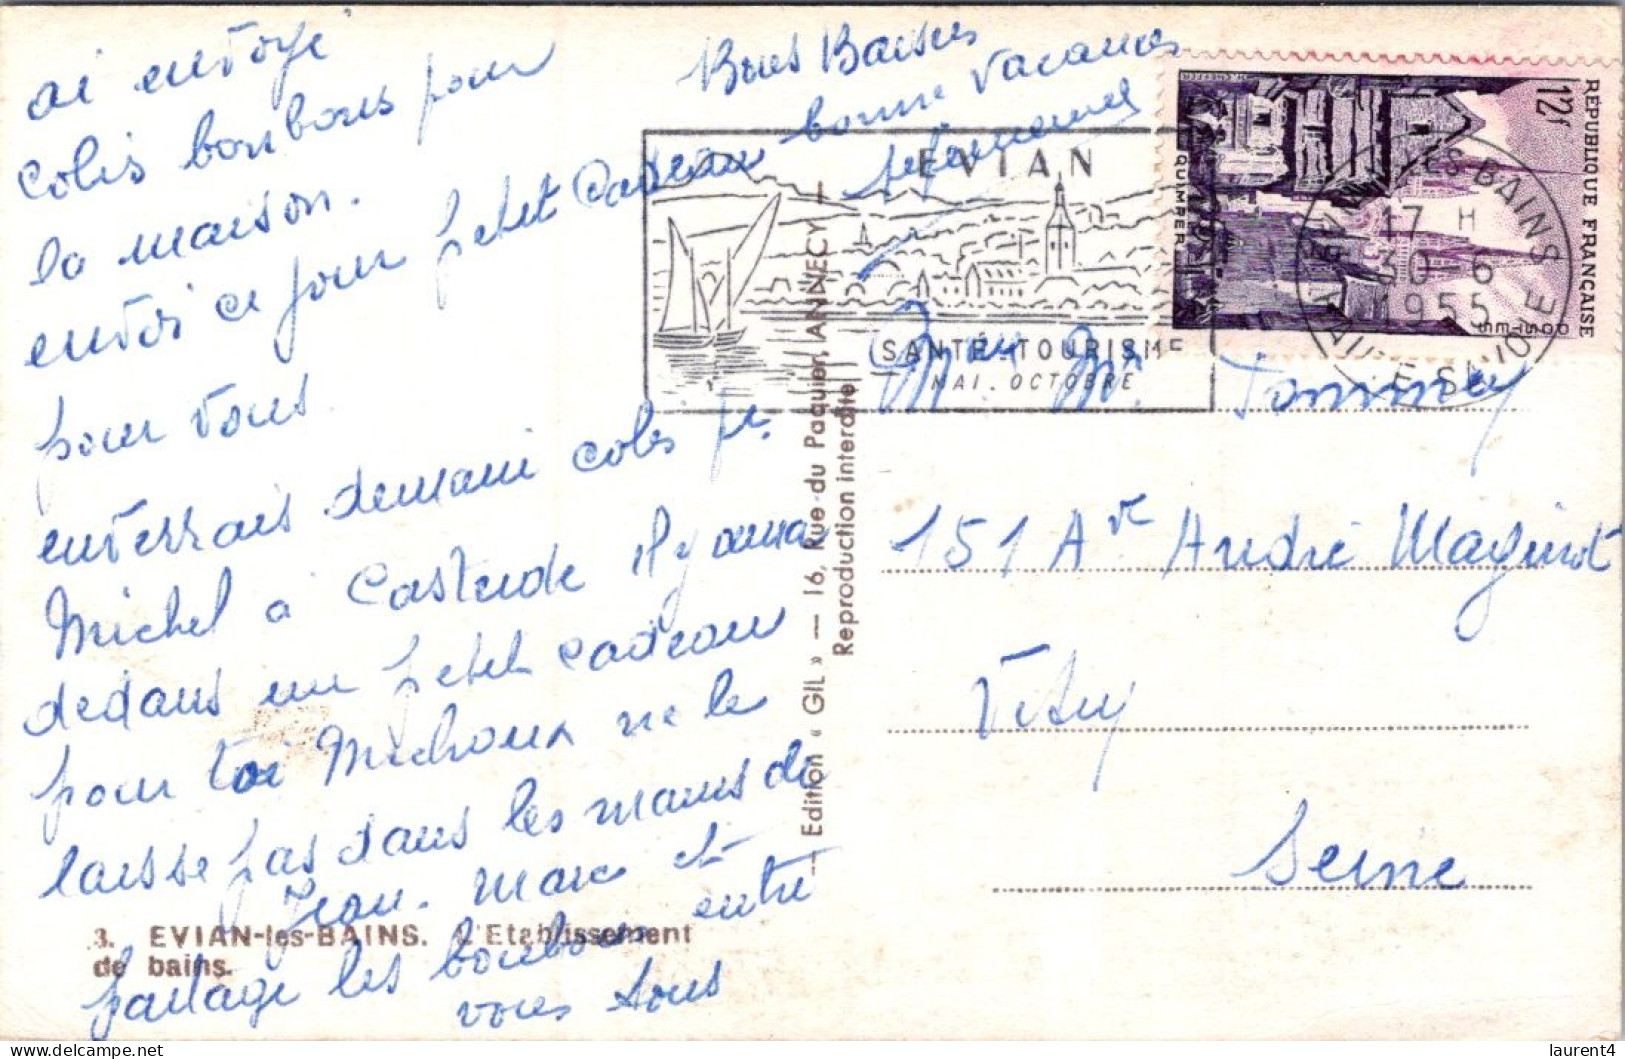 ai envoyé
colis bonbons pour
la maison.
envoi ce jour petit cadeau
pour vous
enverrais demain colis pr.
Michel a Casterde il y aura
dedans un petit cadeau
pour toi Michoux ne le
laisse pas dans les mains de
Jean. Marc et
partage les bonbons entre
vous tous
Bons Baisers
bonne vacances
3. EVIAN-les-BAINS. L'Etablissement
de bains.
— Edition « GIL » — 16, Rue du Paquier, ANNECY —
Reproduction interdite
EVIAN
SANTÉ-TOURISME
MAI. OCTOBRE
RÉPUBLIQUE FRANÇAISE
12f
QUIMPER
POSTES
EVIAN LES BAINS
17 H
30-6
1955
HAUTE SAVOIE
Mme Mr. Tommey
151 Ave André Maginot
Vitry
Seine
delcampe.net
laurent4